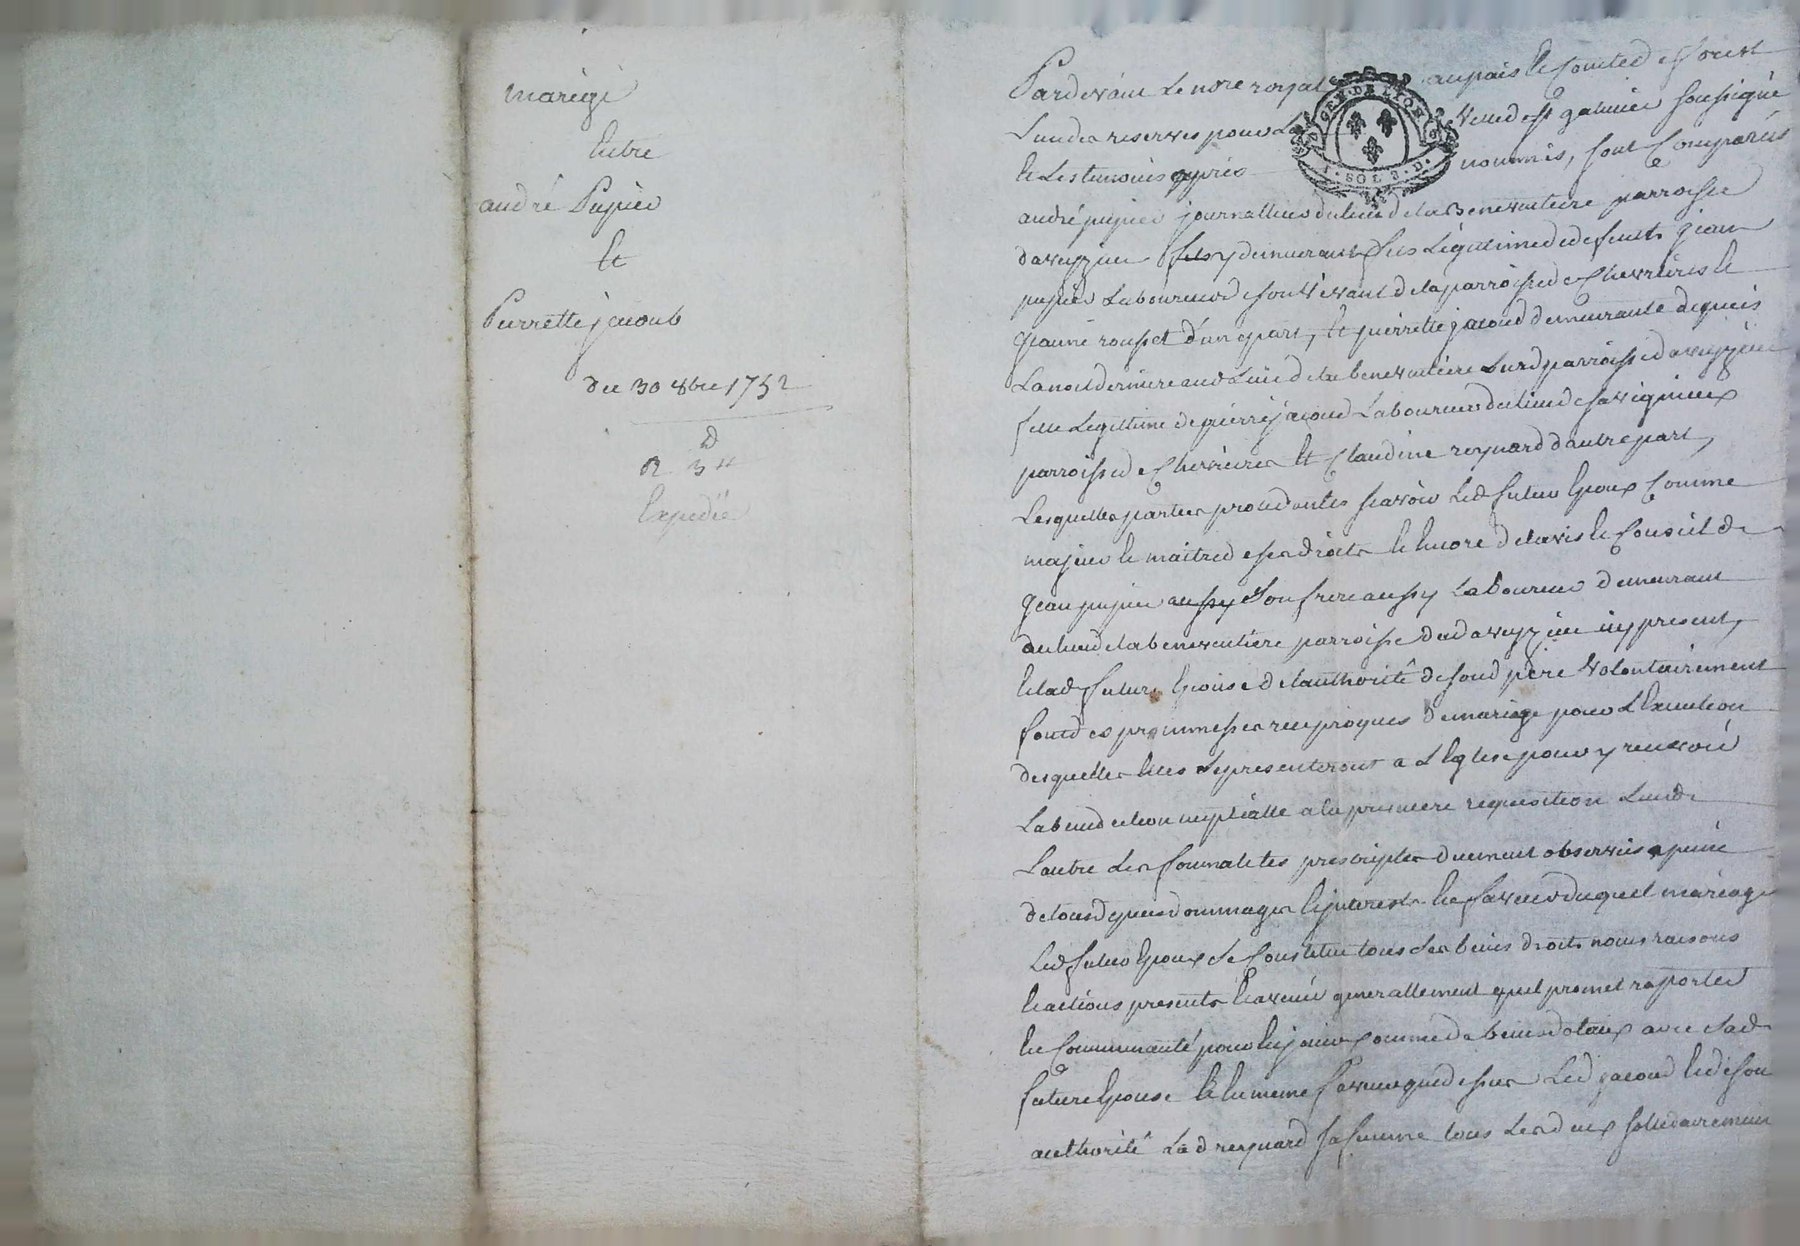 mariage
Entre
andré Pupier
Et
Pierrette jacoud
du 30 8bre 1752
Expedié
Pardevant Le nore royal au pais et Comté de forest
GEN. DE LYON
SOLS. D.
L'un des reserves pour La Ville de st galmier soussigné
et Les temoins apres nommés, sont Comparus
andré pupier journallier du lieu de la Beneventiere parroisse
d'aveyzieu y demeurant fils Légitime de defunts jean
pupier Laboureur de son vivant de la parroisse de Chevrieres et
jeanne rousset d'une part, Et pierrette jacoud demeurante depuis
La noel derniere aud Lieu de la beneventiere Susd parroisse d'aveyzieu
fille Legitime de pierre jacoud Laboureur du lieu de savignieux
parroisse de Chevrieres Et Claudine reynard d'autre part,
Lesquelles parties procedantes sçavoir Led futur Epoux Comme
majeur et maitre de ses droits et encore de l'avis et Conseil de
jean pupier aussy son frere aussy Laboureur demeurant
au lieu de la beneventiere parroisse dud aveyzieu icy present,
Et lad future Epouse de l'authorité de sond père Volontairement
font des promesses reciproques de mariage pour L'Execution
desquelles Elles se presenteront a L'Eglise pour y recevoir
La benediction nuptialle a la premiere requisition L'un de
L'autre Les formalités prescriptes duement observées a peine
de tous depens dommages Et interests En faveur duquel mariage
Led futur Epoux se Constitue tous ses biens droits noms raisons
Et actions presents Et avenir generallement qu'il promet raporter
En Communauté pour En jouir Comme de biens dotaux avec sad
future Epouse Et En meme faveur que dessus Led jacoud Et de son
authorité Lad reynard sa femme tous Les deux sollidairement